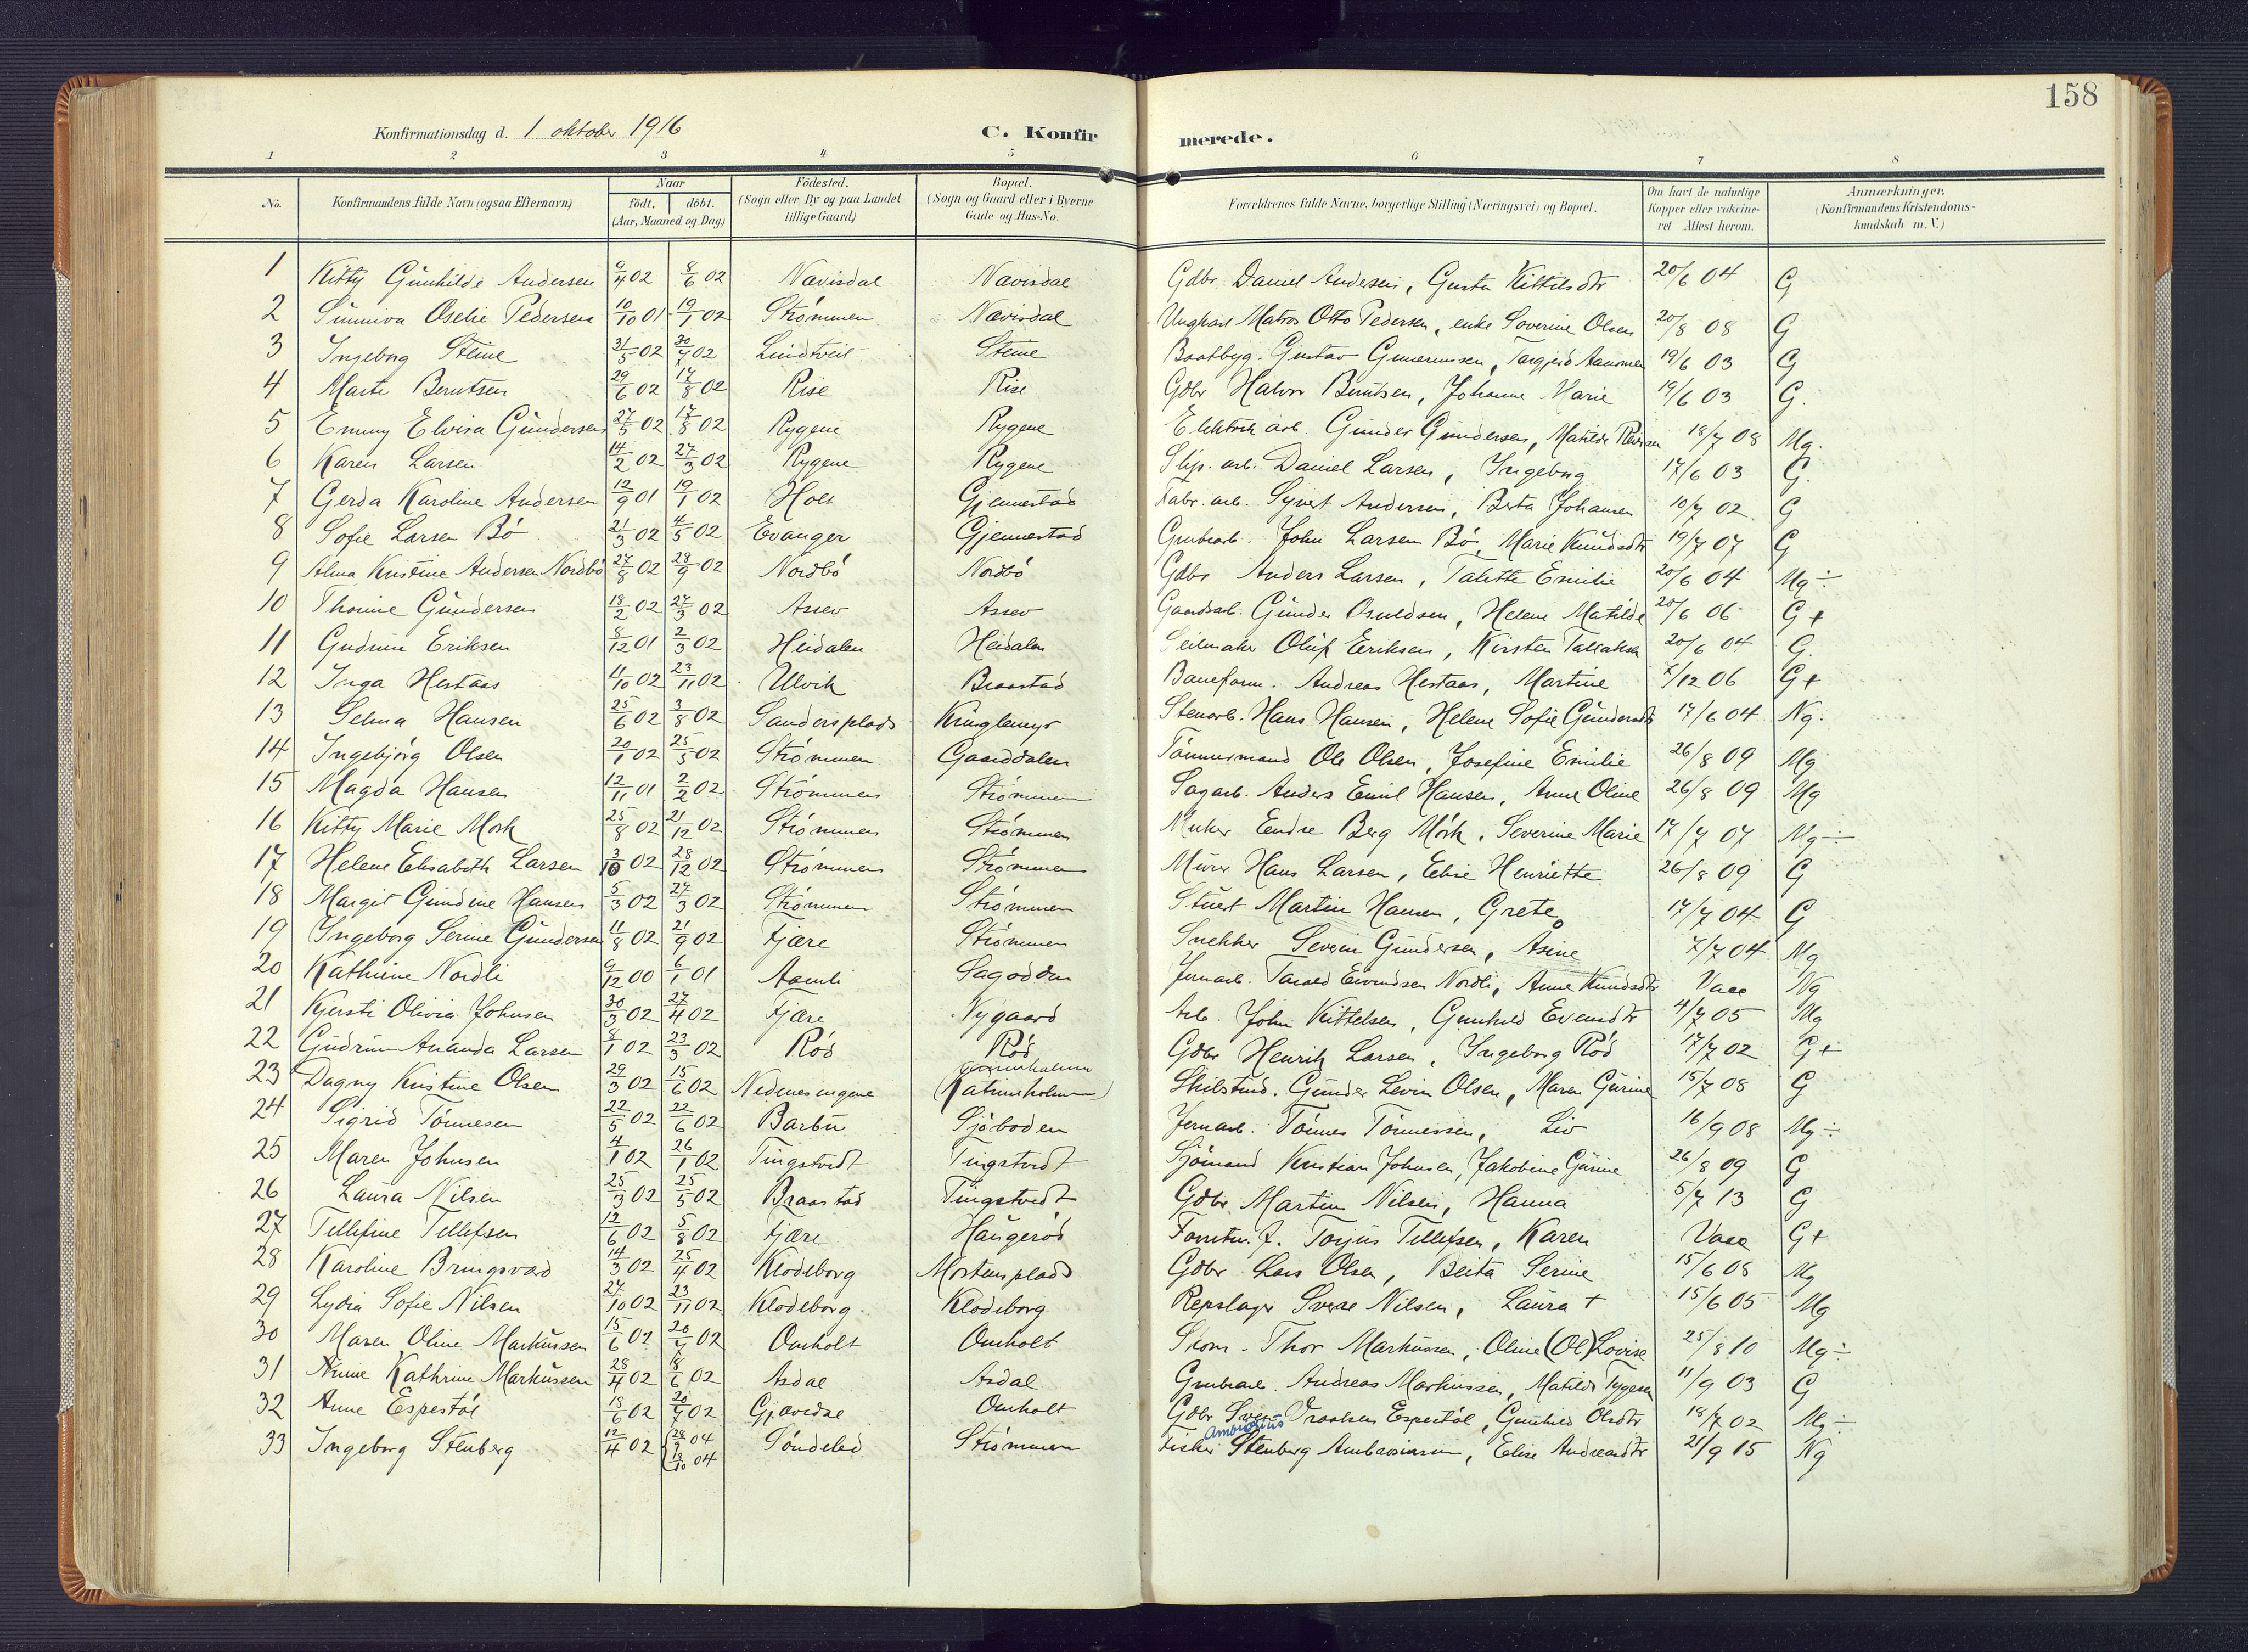 158
Konfirmationsdag d. 1 oktober 1916
C. Konfirmerede.
1 2 3 4 5 6 7 8
No. Konfirmandens fulde Navn (ogsaa Efternavn) Naar født. døbt. (Aar, Maaned og Dag) Fødested. (Sogn eller By og paa Landet tillige Gaard) Bopæl. (Sogn og Gaard eller i Byerne Gade og Hus-No. Forældrenes fulde Navne, borgerlige Stilling (Næringsvei) og Bopæl. Om havt de naturlige Kopper eller vakcineret Attest herom. Anmærkninger. (Konfirmandens Kristendomskundskab m. V.)
1 Kitty Gunhilde Andersen 9/4 02 8/6 02 Nævisdal Nævisdal Gdbr. Daniel Andersen, Gusta Kittilsdtr 20/6 04 G
2 Sunniva Oselie Pedersen 10/10 01 19/1 02 Strømmen Nævisdal Ungkarl Matros Otto Pedersen, enke Severine Olsen 20/8 08 G
3 Ingeborg Steine 31/5 02 30/7 02 Lindtveit Steine Baatbyg. Gustav Guneriussen, Torgjerd Aanonsen 19/6 03 G
4 Marte Berntsen 29/6 02 17/8 02 Rise Rise Gdbr Halvor Berntsen, Johanne Marie 19/6 03 G.
5 Emmy Elvira Gundersen 27/5 02 17/8 02 Rygene Rygene Elektrisk arb. Gunder Gundersen, Matilde 18/7 08 Mg.
6 Karen Larsen 14/2 02 27/3 02 Rygene Rygene Slip. arb. Daniel Larsen, Ingeborg 17/6 03 G.
7 Gerda Karoline Andersen 12/9 01 19/1 02 Holt Gjennestad Fabr. arb. Syvert Andersen, Berta Johansen 10/7 02 G
8 Sofie Larsen Bø 21/3 02 4/5 02 Evanger Gjennestad Grubearb. John Larsen Bø, Marie Knudsdtr 19/7 07 G
9 Alma Kristine Andersen Nordbø 27/8 02 28/9 02 Nordbø Nordbø Gdbr Anders Larsen, Talette Emilie 20/6 04 Mg ÷
10 Thomine Gundersen 18/2 02 27/3 02 Assev Assev Gaardsarb. Gunder Osuldsen, Helene Matilde 20/6 06 G +
11 Gudrun Eriksen 8/12 01 2/3 02 Heidalen Heidalen Seilmaker Oluf Eriksen, Kirsten Tallaksen 20/6 04 G.
12 Inga Hestaas 11/10 02 23/11 02 Ulvik Braastad Baneform. Andreas Hestaas, Martine 7/12 06 G+
13 Selma Hansen 25/6 02 3/8 02 Sandersplads Kringlemyr Stenarb. Hans Hansen, Helene Sofie Gundersdtr 17/6 04 Ng.
14 Ingebjørg Olsen 20/1 02 25/5 02 Strømmen Gaarddalen Tømmermand Ole Olsen, Josefine Emilie 26/8 09 Mg
15 Magda Hansen 12/11 01 2/2 02 Strømmen Strømmen Sagarb. Anders Emil Hansen, Anne Oline 26/8 09 Mg
16 Kitty Marie Mørk 25/8 02 21/12 02 Strømmen Strømmen Endre Berg Mørk, Severine Marie 17/7 07 Mg ÷
17 Helene Elisabeth Larsen 3/10 02 28/12 02 Strømmen Strømmen Murer Hans Larsen, Elise Henriette 26/8 09 G
18 Margit Gundine Hansen 5/3 02 27/3 02 Strømmen Strømmen Stuert Martin Hansen, Grete 17/7 04 G
19 Ingeborg Serine Gundersen 11/8 02 21/9 02 Fjære Strømmen Snekker Severin Gundersen, Åsine 7/7 04 Mg
20 Kathrine Nordli 9/12 00 6/1 01 Aamli Sagodden Jernarb. Tarald Eivindsen Nordli, Anne Knudsdtr Vacc Ng
21 Kjersti Olivia Johnsen 30/3 02 27/4 02 Fjære Nygaard Arb. John Kittelsen, Gunhild Evensdtr 4/7 05 Mg
22 Gudrun Ananda Larsen 8/1 02 23/3 02 Rød Rød Gdbr Henrik Larsen, Ingeborg Rød 17/7 02 G+
23 Dagny Kristine Olsen 29/3 02 15/6 02 Nedenesengene (Katrineholmen) Skilsmd. Gunder Levin Olsen, Maren Gurine 15/7 08 G
24 Sigrid Tønnesen 22/5 02 22/6 02 Barbu Sjøboden Jernarb. Tønnes Tønnessen, Liv 16/9 08 Mg ÷
25 Maren Johnsen 4/1 02 26/1 02 Tingstvedt Tingstvedt Sjømand Kristian Johnsen, Jakobine Gurine 26/8 09 G
26 Laura Nilsen 25/3 02 25/5 02 Braastad Tingstvedt Gdbr Martin Nilsen, Hanna 5/7 13 G
27 Tellefine Tellefsen 12/6 02 5/8 02 Fjære Haugerød Torjus Tellefsen, Karen Vacc G+
28 Karoline Bringsværd 14/3 02 25/4 02 Klodeborg Mortensplads Gdbr Lars Olsen, Berta Serine 15/6 08 Mg
29 Lydia Sofie Nilsen 27/10 02 23/11 02 Klodeborg Klodeborg Repslager Sverre Nilsen, Laura + 15/6 05 Mg
30 Maren Oline Markussen 15/6 02 20/7 02 Omholt Omholt Skom. Thor Markussen, Oline (Ol) Lovise 25/8 10 Mg ÷
31 Anne Kathrine Markussen 28/4 02 18/6 02 Asdal Asdal Grubearb. Andreas Markussen, Matilde Tygesen 11/9 03 G
32 Anne Espestøl 18/6 02 20/7 02 Gjøvdal Omholt Gdbr Sven Vraalsen Espestøl, Gunhild Olsdtr 18/7 02 Mg ÷
Ambrosius
33 Ingeborg Stenberg 12/4 02 28/9 04 18/10 04 Søndeled Strømmen Fisker Stenberg Ambrosiussen, Elise Andreasdtr 21/9 15 Ng